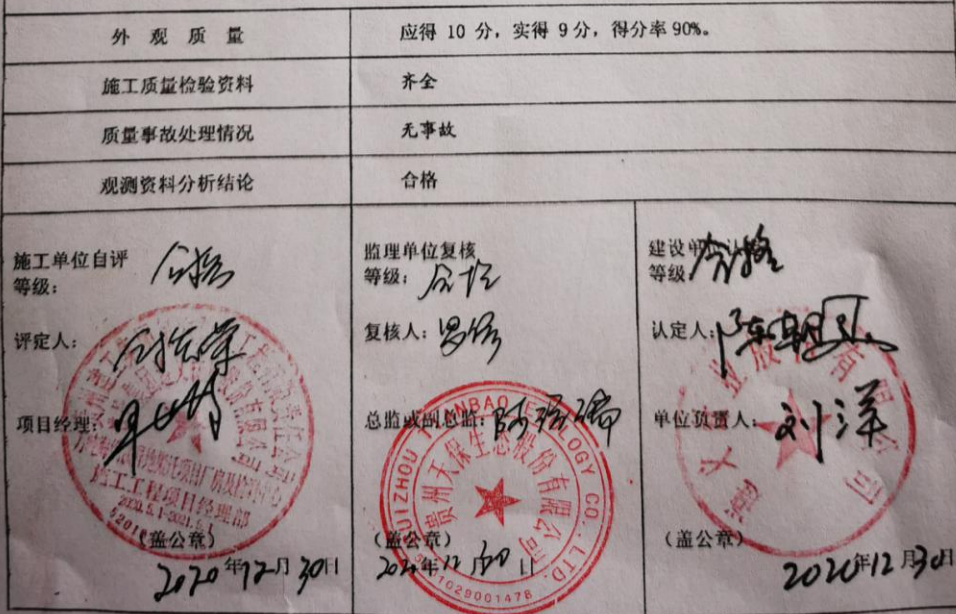 外观质量 应得 10 分，实得 9 分，得分率 90%。
施工质量检验资料 齐全
质量事故处理情况 无事故
观测资料分析结论 合格
施工单位自评
等级：合格
评定人：
项目经理：
施工工程项目经理部
2020.5.1-2021.5.1
（盖公章）
2020年12月30日
监理单位复核
等级：合格
复核人：
总监或副总监：
GUIZHOU TIANBAO ECOLOGY CO., LTD.
贵州天保生态股份有限公司
（盖公章）
2020年12月30日
建设单位认定
等级：合格
认定人：
单位负责人：刘洋
有限公司
（盖公章）
2020年12月30日